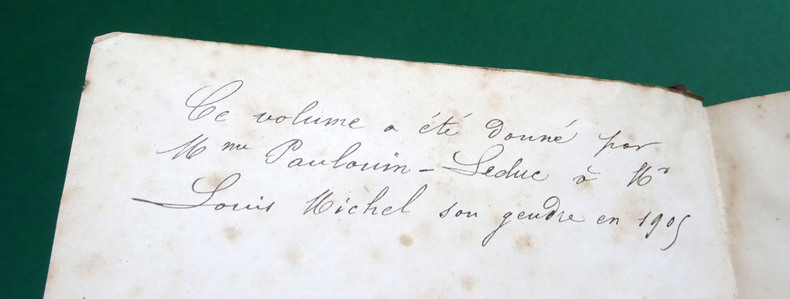 Ce volume a été donné par
Mme Paulouin - Leduc à Mr
Louis Michel son gendre en 1905